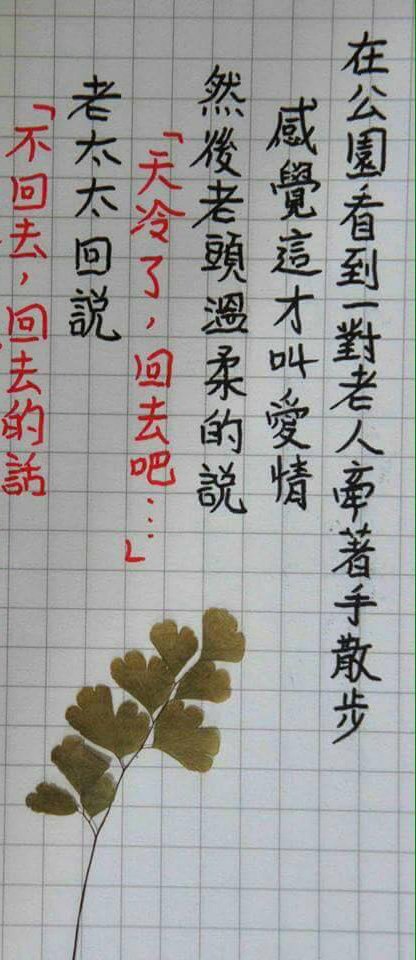 在公園看到一對老人牽著手散步
感覺這才叫愛情
然後老頭溫柔的說
「天冷了，回去吧…」
老太太回説
「不回去，回去的話